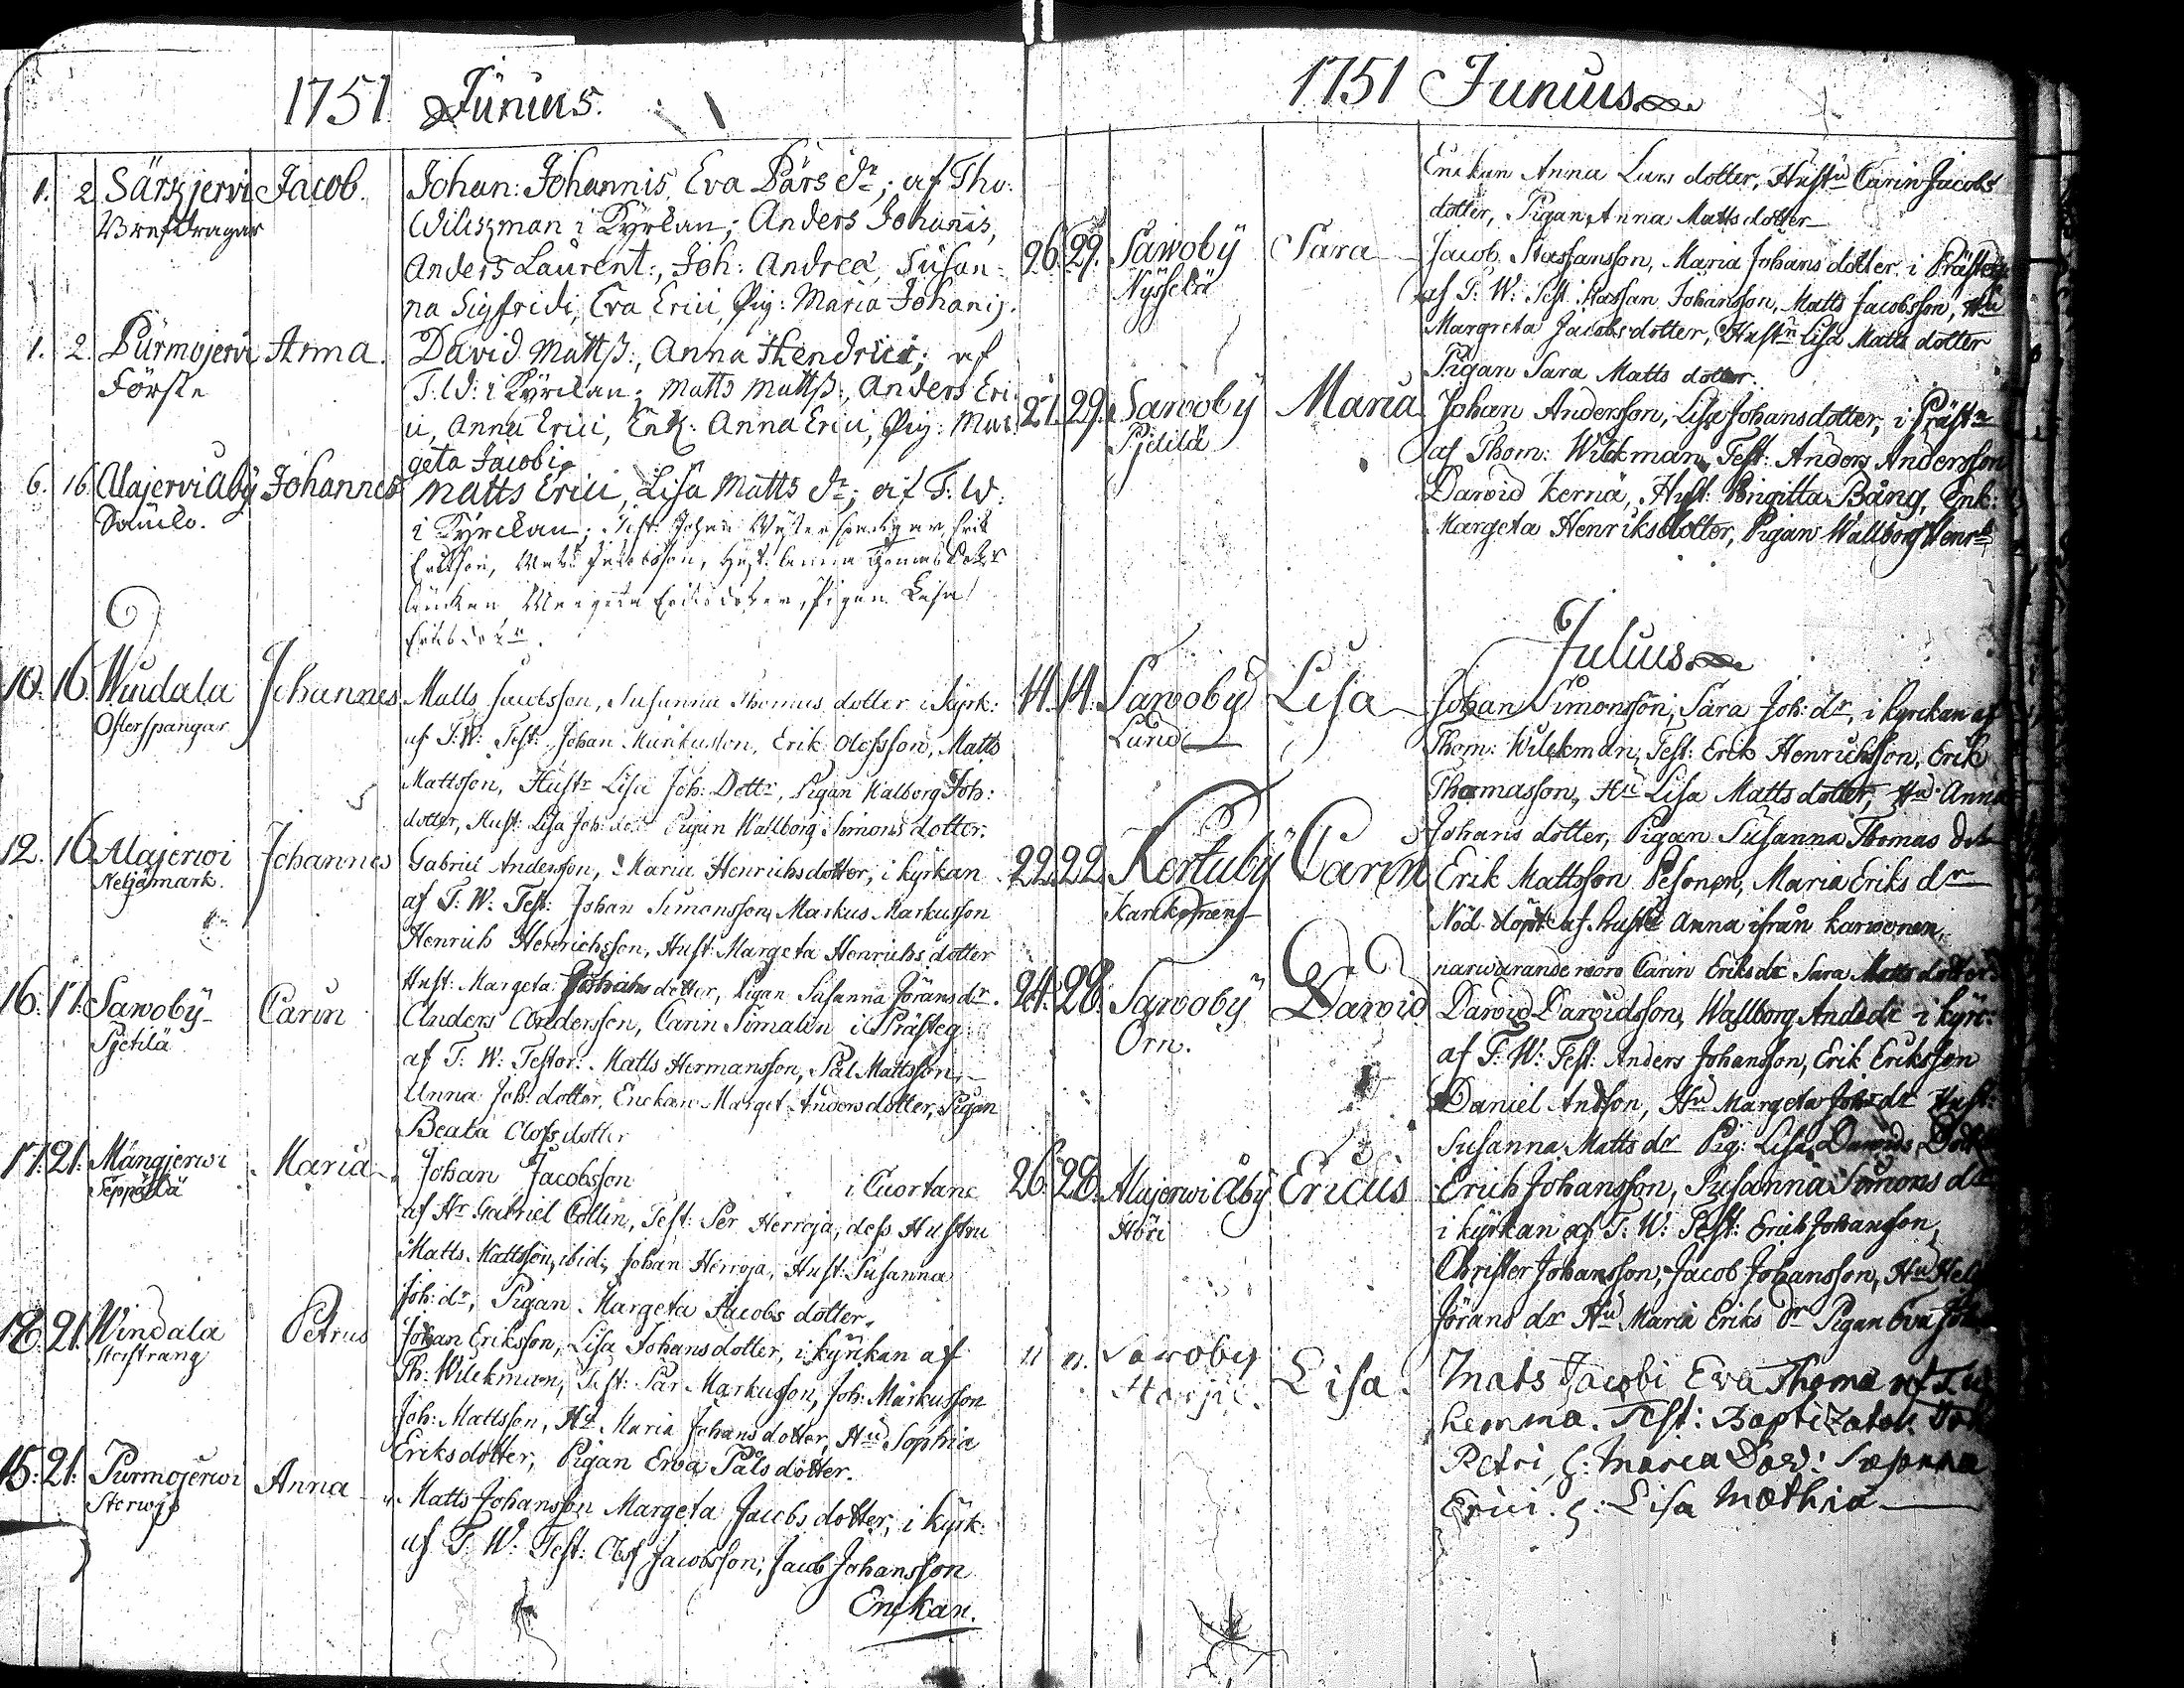 1751 Junius.
1. 2 Särkjervi Jacob. Johan: Johannis, Eva Pärs dr; af Tho:
Brefdragar Wilkman i Kyrkan; Anders Johannis,
Anders Laurent:, Joh: Andreæ, Susan-
na Sigfridi, Eva Erici, Pig: Maria Johanis.
1. 2. Purmojervi Anna. David Mattß:, Anna Hendrici; af
Förste T. W: i Kyrckan; Matts Mattß:, Anders Eri-
ci, Anna Erici, Enk: Anna Erici, Pig: Mar-
geta Jacobi.
6. 16. Alajervi Åby Johannes Matts Erici, Lisa Matts dr; af T: W:
Saucko. i Kyrckan; Test: Johan Erik
Eriksson, Matts Jacobsson, Hust: Anna Thomas Doter
Änckan Margeta Eriks doter, Pigan Lisa
Eriksdotr.
10. 16. Windala Johannes Matts Jacobsson, Susanna Thomas dotter i Kyrk:
Österspangar af T: W: Test: Johan Markusson, Erik Olofsson, Matts
Mattsson, Hustr Lisa Joh: Dottr, Pigan Walborg Joh:
dotter, Hust: Lisa Joh: dott Pigan Wallborg Simons dotter.
12. 16 Alajerwi Johannes Gabriel Andersson, Maria Henrichsdotter, i kyrkan
Neljämark. af T: W: Test: Johan Simonsson, Markus Markusson
Henrich Henrichsson, Hust: Margeta Henrichs dotter
Hust: Margeta Johans dotter, Pigan Susanna Jörans dr.
16: 17: Sawoby Carin Anders Andersson, Carin Simalin i Prästeg:
Pjetilä af T: W: Testor: Matts Hermansson, Pål Mattsson,
Anna Joh: dotter, Enckan Marget Anders dotter, Pigan
Beata Olofsdotter
17: 21: Mängjerwi Maria Johan Jacobsson i Cuortane
Seppälä af Hr Gabriel Collin, Test: Per Herroja, dess Hustru
Matts Mattsson, ibid; Johan Herroja, Hust: Susanna
Joh: dr, Pigan Margeta Jacobs dotter.
18. 21. Windala Petrus Johan Eriksson, Lisa Johans dotter, i kyrkan af
Storstrang Th: Wilckman, Test: Pär Markusson, Joh: Markusson
Joh: Mattsson, Hu Maria Johans dotter, Hu Sophia
Eriks dotter, Pigan Ewa Påls dotter.
15: 21: Purmojerwi Anna Matts Johansson Margeta Jacobs dotter, i kyrk:
Storwis af T: W: Test: Olof Jacobsson, Jacob Johansson
Enckan.
1751 Junius
Enckan Anna Lars dotter, Hustu Carin Jacobs
dotter, Pigan Anna Matts dotter
26. 29. Sawoby Sara Jacob Staffansson, Maria Johans dotter, i Prästeg
Nyssölä af T: W: Test: Staffan Johansson, Matts Jacobsson, Hu
Margreta Jacobs dotter, Hustu Lisa Matts dotter
Pigan Sara Matts dotter.
27. 29. Sawoby Maria Johan Andersson, Lisa Johansdotter, i Präst
Pjetilä af Thom: Wilckman, Test: Anders Andersson
Dawid Kernä, Hust: Brigitta Bång, Enk:
Margeta Henriks dotter, Pigan Wallborg Henr
Julius
14. 14. Sawoby Lisa Johan Simonsson, Sara Joh: dr, i kyrckan af
Lund Thom: Wilckman, Test: Erik Henricksson, Erik
Thomasson, Hu Lisa Matts dotter, Hu Anna
Johans dotter, Pigan Susanna Thomas dot
22. 22. Kertuby Carin Erik Mattsson Pesonen, Maria Eriks dr
Karikoment Nöd döpt af hustr Anna ifrån karwonen,
narwarande woro Carin Eriks dr Sara Matts dotter
24. 28. Sawoby Dawid Dawid Dawidsson, Wallborg Ands dr i kyrc:
Orn. af T: W: Test: Anders Johansson, Erik Eriksson
Daniel Andsson, Hu Margeta Johs dr Hust:
Susanna Matts dr Pig: Lisa Dawids Dott
26. 28. Alajerwi Åby Ericus Erich Johansson, Susanna Simons dr
Höri i kyrkan af T: W: Test: Erich Johansson,
Christer Johansson, Jacob Johansson, Hu Hel
Jörans dr Hu Maria Eriks dr Pigan Eva Joh
11 11. Sawoby Lisa. Mats Jacobi Eva Thomæ af T. W
Harju. hemma. Test: Baptizator. Joh
Petri, h: Maria Dav: Susanna
Erici. h: Lisa Mathiæ